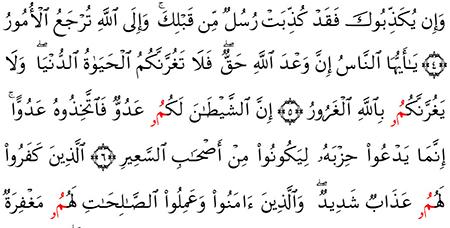 وَإِن يُكَذِّبُوكَ فَقَدْ كُذِّبَتْ رُسُلٌ مِّن قَبْلِكَ ۚ وَإِلَى ٱللَّهِ تُرْجَعُ ٱلْأُمُورُ
﴿٤﴾ يَـٰٓأَيُّهَا ٱلنَّاسُ إِنَّ وَعْدَ ٱللَّهِ حَقٌّ ۖ فَلَا تَغُرَّنَّكُمُ ٱلْحَيَوٰةُ ٱلدُّنْيَا ۖ وَلَا
يَغُرَّنَّكُمُۥ بِٱللَّهِ ٱلْغَرُورُ ﴿٥﴾ إِنَّ ٱلشَّيْطَـٰنَ لَكُمُۥ عَدُوٌّ فَٱتَّخِذُوهُ عَدُوًّا ۚ
إِنَّمَا يَدْعُوا۟ حِزْبَهُۥ لِيَكُونُوا۟ مِنْ أَصْحَـٰبِ ٱلسَّعِيرِ ﴿٦﴾ ٱلَّذِينَ كَفَرُوا۟
لَهُمُۥ عَذَابٌ شَدِيدٌ ۖ وَٱلَّذِينَ ءَامَنُوا۟ وَعَمِلُوا۟ ٱلصَّـٰلِحَـٰتِ لَهُمُۥ مَغْفِرَةٌ